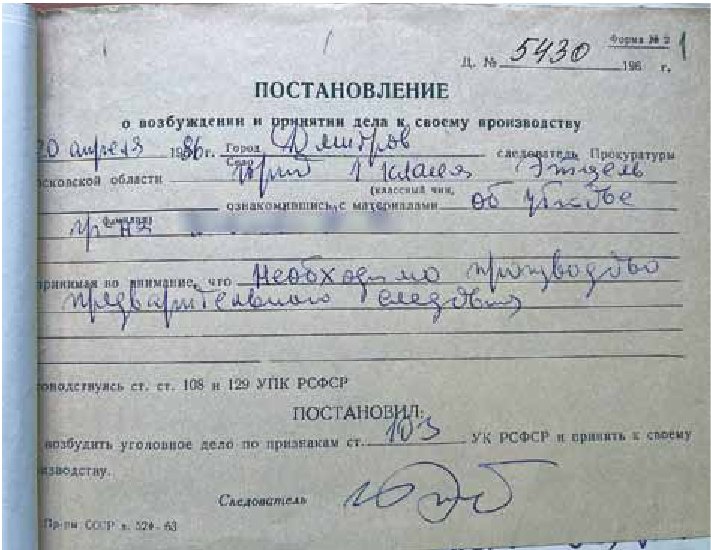 Форма № 2 1
Д. № 5430 196 г.
ПОСТАНОВЛЕНИЕ
о возбуждении и принятии дела к своему производству
20 апреля 1986 г. Город Дмитров следователь Прокуратуры
Село
осковской области юрист 1 класса Этцель
(классный чин,
фамилия) ознакомившись с материалами об убийстве
гр-на
ринимая во внимание, что необходимо производство
предварительного следствия
оводствуясь ст. ст. 108 и 129 УПК РСФСР
ПОСТАНОВИЛ:
возбудить уголовное дело по признакам ст. 103 УК РСФСР и принять к своему
изводству.
Следователь
Пр-ры СССР з. 520-63